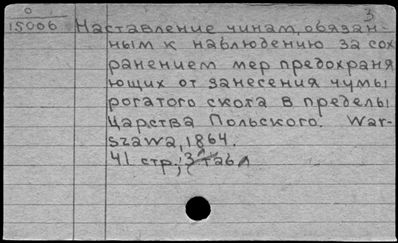 3
0
15006 Наставление чинам, обязан-
ным к наблюдению за сох
ранением мер предохраня
ющих от занесения чумы
рогатого скота в пределы
Царства Польского. War-
szawa, 1864.
41 стр;